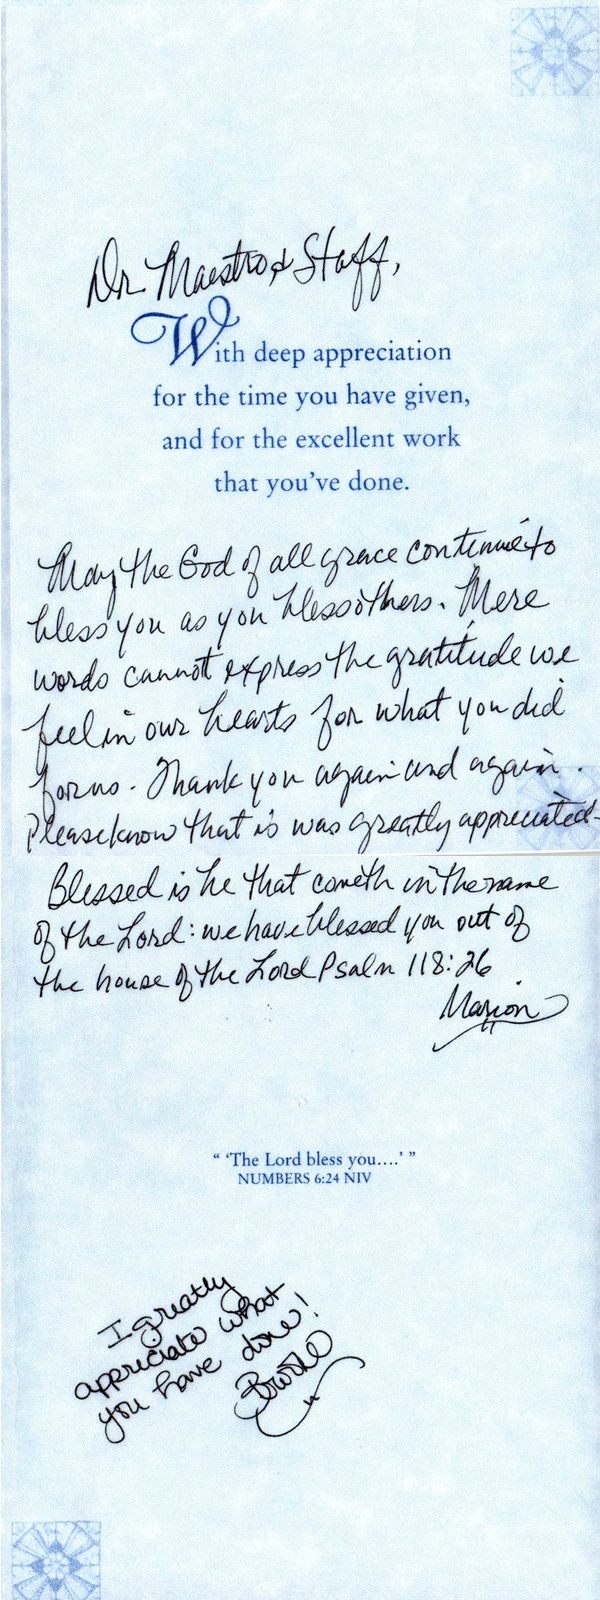 Dr. Maestro & Staff,
With deep appreciation
for the time you have given,
and for the excellent work
that you've done.
May the God of all grace continue to
bless you as you bless others. Mere
words cannot express the gratitude we
feel in our hearts for what you did
for us. Thank you again and again.
Please know that is was greatly appreciated.
Blessed is he that cometh in the name
of the Lord: we have blessed you out of
the house of the Lord Psalm 118:26
Marion
“ ‘The Lord bless you....’ ”
NUMBERS 6:24 NIV
I greatly
appreciate what
you have done!
Brooke